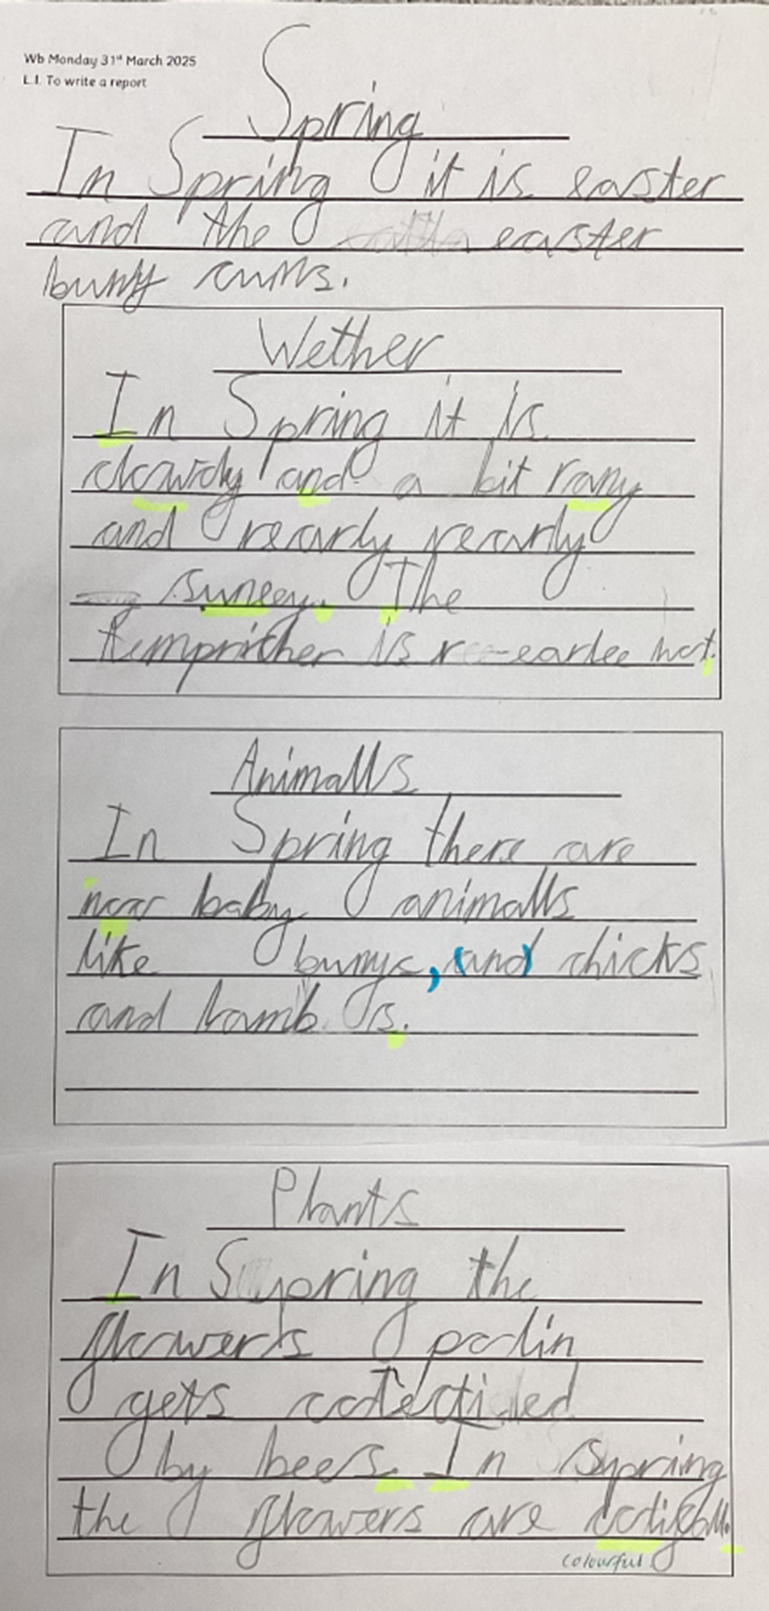 Wb Monday 31st March 2025
L.I. To write a report
Spring
In Spring it is easter
and the easter
buny cums.
Wether
In Spring it is
clowdy and a bit rany
and rearly rearly
sunsey. The
tempricher is r-earlee hot.
Animalls
In Spring there are
baby animalls
like bunys, (and) chicks
and lamb s.
Plants
In Spring the
flowers polin
gets colected
by bees. In Spring
the flowers are
colourful